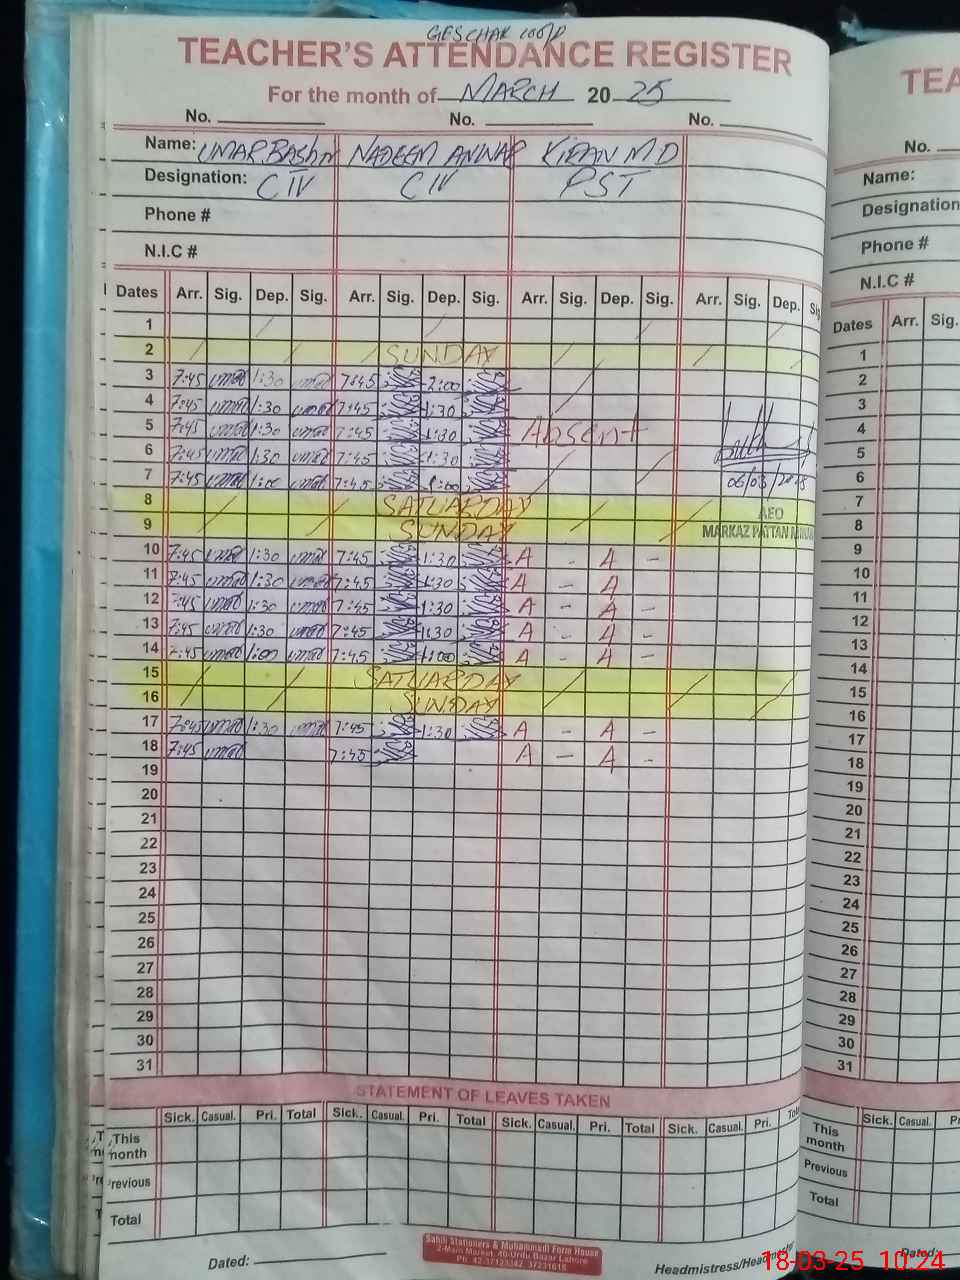 GESCHAK 100/P
TEACHER'S ATTENDANCE REGISTER
For the month of MARCH 20 25
No. No. No.
Name: UMAR Bashir NADEEM ANWAR KIRAN M D
Designation: C IV C IV PST
Phone #
N.I.C #
Dates Arr. Sig. Dep. Sig. Arr. Sig. Dep. Sig. Arr. Sig. Dep. Sig. Arr. Sig. Dep. Sig
1
2 SUNDAY
3 7:45 umar 1:30 umar 7:45 2:00
4 7:45 umar 1:30 umar 7:45 1:30
5 7:45 umar 1:30 umar 7:45 1:30 Absent
6 7:45 umar 1:30 umar 7:45 1:30
7 7:45 umar 1:00 umar 7:45 1:00 06/03/2025
8 SATUARDAY AEO
9 SUNDAY MARKAZ PATTAN
10 7:45 umar 1:30 umar 7:45 1:30 A - A -
11 7:45 umar 1:30 umar 7:45 1:30 A - A -
12 7:45 umar 1:30 umar 7:45 1:30 A - A -
13 7:45 umar 1:30 umar 7:45 1:30 A - A -
14 7:45 umar 1:00 umar 7:45 1:00 A - A -
15 SATUARDAY
16 SUNDAY
17 7:45 umar 1:30 umar 7:45 1:30 A - A -
18 7:45 umar 7:45 A - A -
19
20
21
22
23
24
25
26
27
28
29
30
31
STATEMENT OF LEAVES TAKEN
Sick. Casual. Pri. Total Sick. Casual. Pri. Total Sick. Casual. Pri. Total Sick. Casual. Pri. Total
This month
Previous
Total
Dated:
Sahil Stationers & Muhammadi Form House
2-Main Market, 40-Urdu Bazar Lahore
Ph: 42-37123342, 37231615
Headmistress/Headmaster
TEA
No.
Name:
Designation
Phone #
N.I.C #
Dates Arr. Sig.
1
2
3
4
5
6
7
8
9
10
11
12
13
14
15
16
17
18
19
20
21
22
23
24
25
26
27
28
29
30
31
Sick. Casual. P
This month
Previous
Total
Dated:
18-03-25 10:24